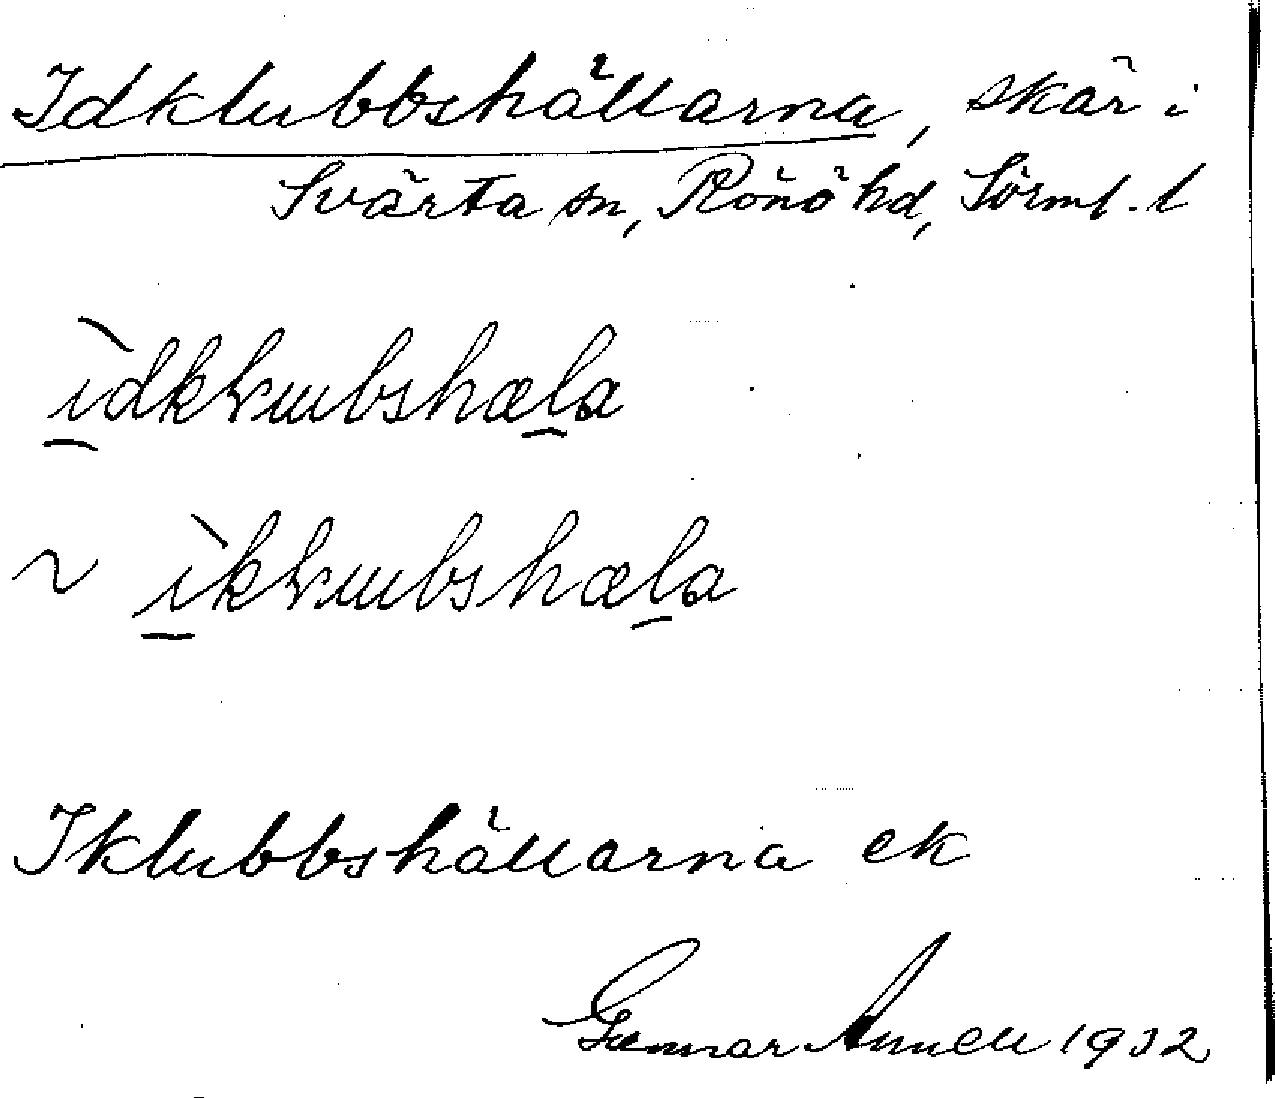 Idklubbshällarna, skär i
Svärta sn, Rönö hd, Sörml. l
ìdklɯbshæla
~ ìklɯbshæla
Iklubbshällarna ek
Gunnar Annell 1932